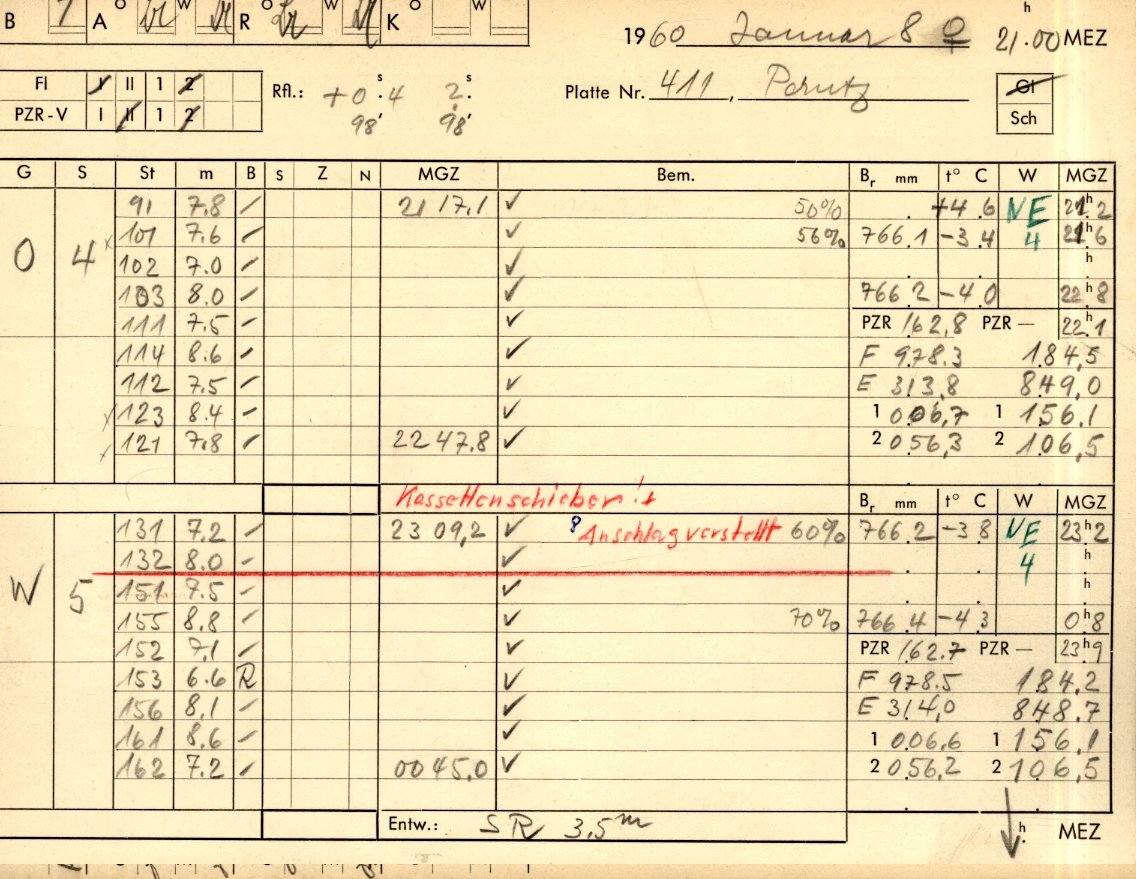 B A O W R O W K O W
1960 Januar 8 ♀ 21.00 h MEZ
FI I II 1 2
PZR-V I II 1 2
Rfl.: +0 s. 4 2 s.
98' 98'
Platte Nr. 411, Perutz
Gl
Sch
G S St m B S Z N MGZ Bem. Br mm t° C W MGZ
91 7.8 21 17,1 ✓ 56% +4.6 NE 21h2
O 4 101 7.6 ✓ 56% 766.1 -3.4 4 21h6
102 7.0 ✓ h
103 8.0 ✓ 766.2 -4.0 22h8
111 7.5 ✓ PZR 162,8 PZR — 22h1
114 8.6 ✓ F 978.3 184,5
112 7.5 ✓ E 313,8 849,0
123 8.4 ✓ 1 006,7 1 156.1
121 7,8 22 47,8 ✓ 2 056,3 2 106,5
Kassettenschieber!
Br mm t° C W MGZ
131 7.2 23 09,2 ✓ Anschlag verstellt 60% 766.2 -3.8 NE 23h2
132 8.0 ✓ 4 h
W 5 151 7.5 ✓ h
155 8.8 ✓ 70% 766.4 -4.3 0h8
152 7,1 ✓ PZR 162.7 PZR — 23h9
153 6.6 R ✓ F 978.5 184,2
156 8,1 ✓ E 314,0 848.7
161 8,6 ✓ 1 006,6 1 156,1
162 7.2 00 45,0 ✓ 2 056,2 2 106,5
Entw.: SR 3,5 m h MEZ